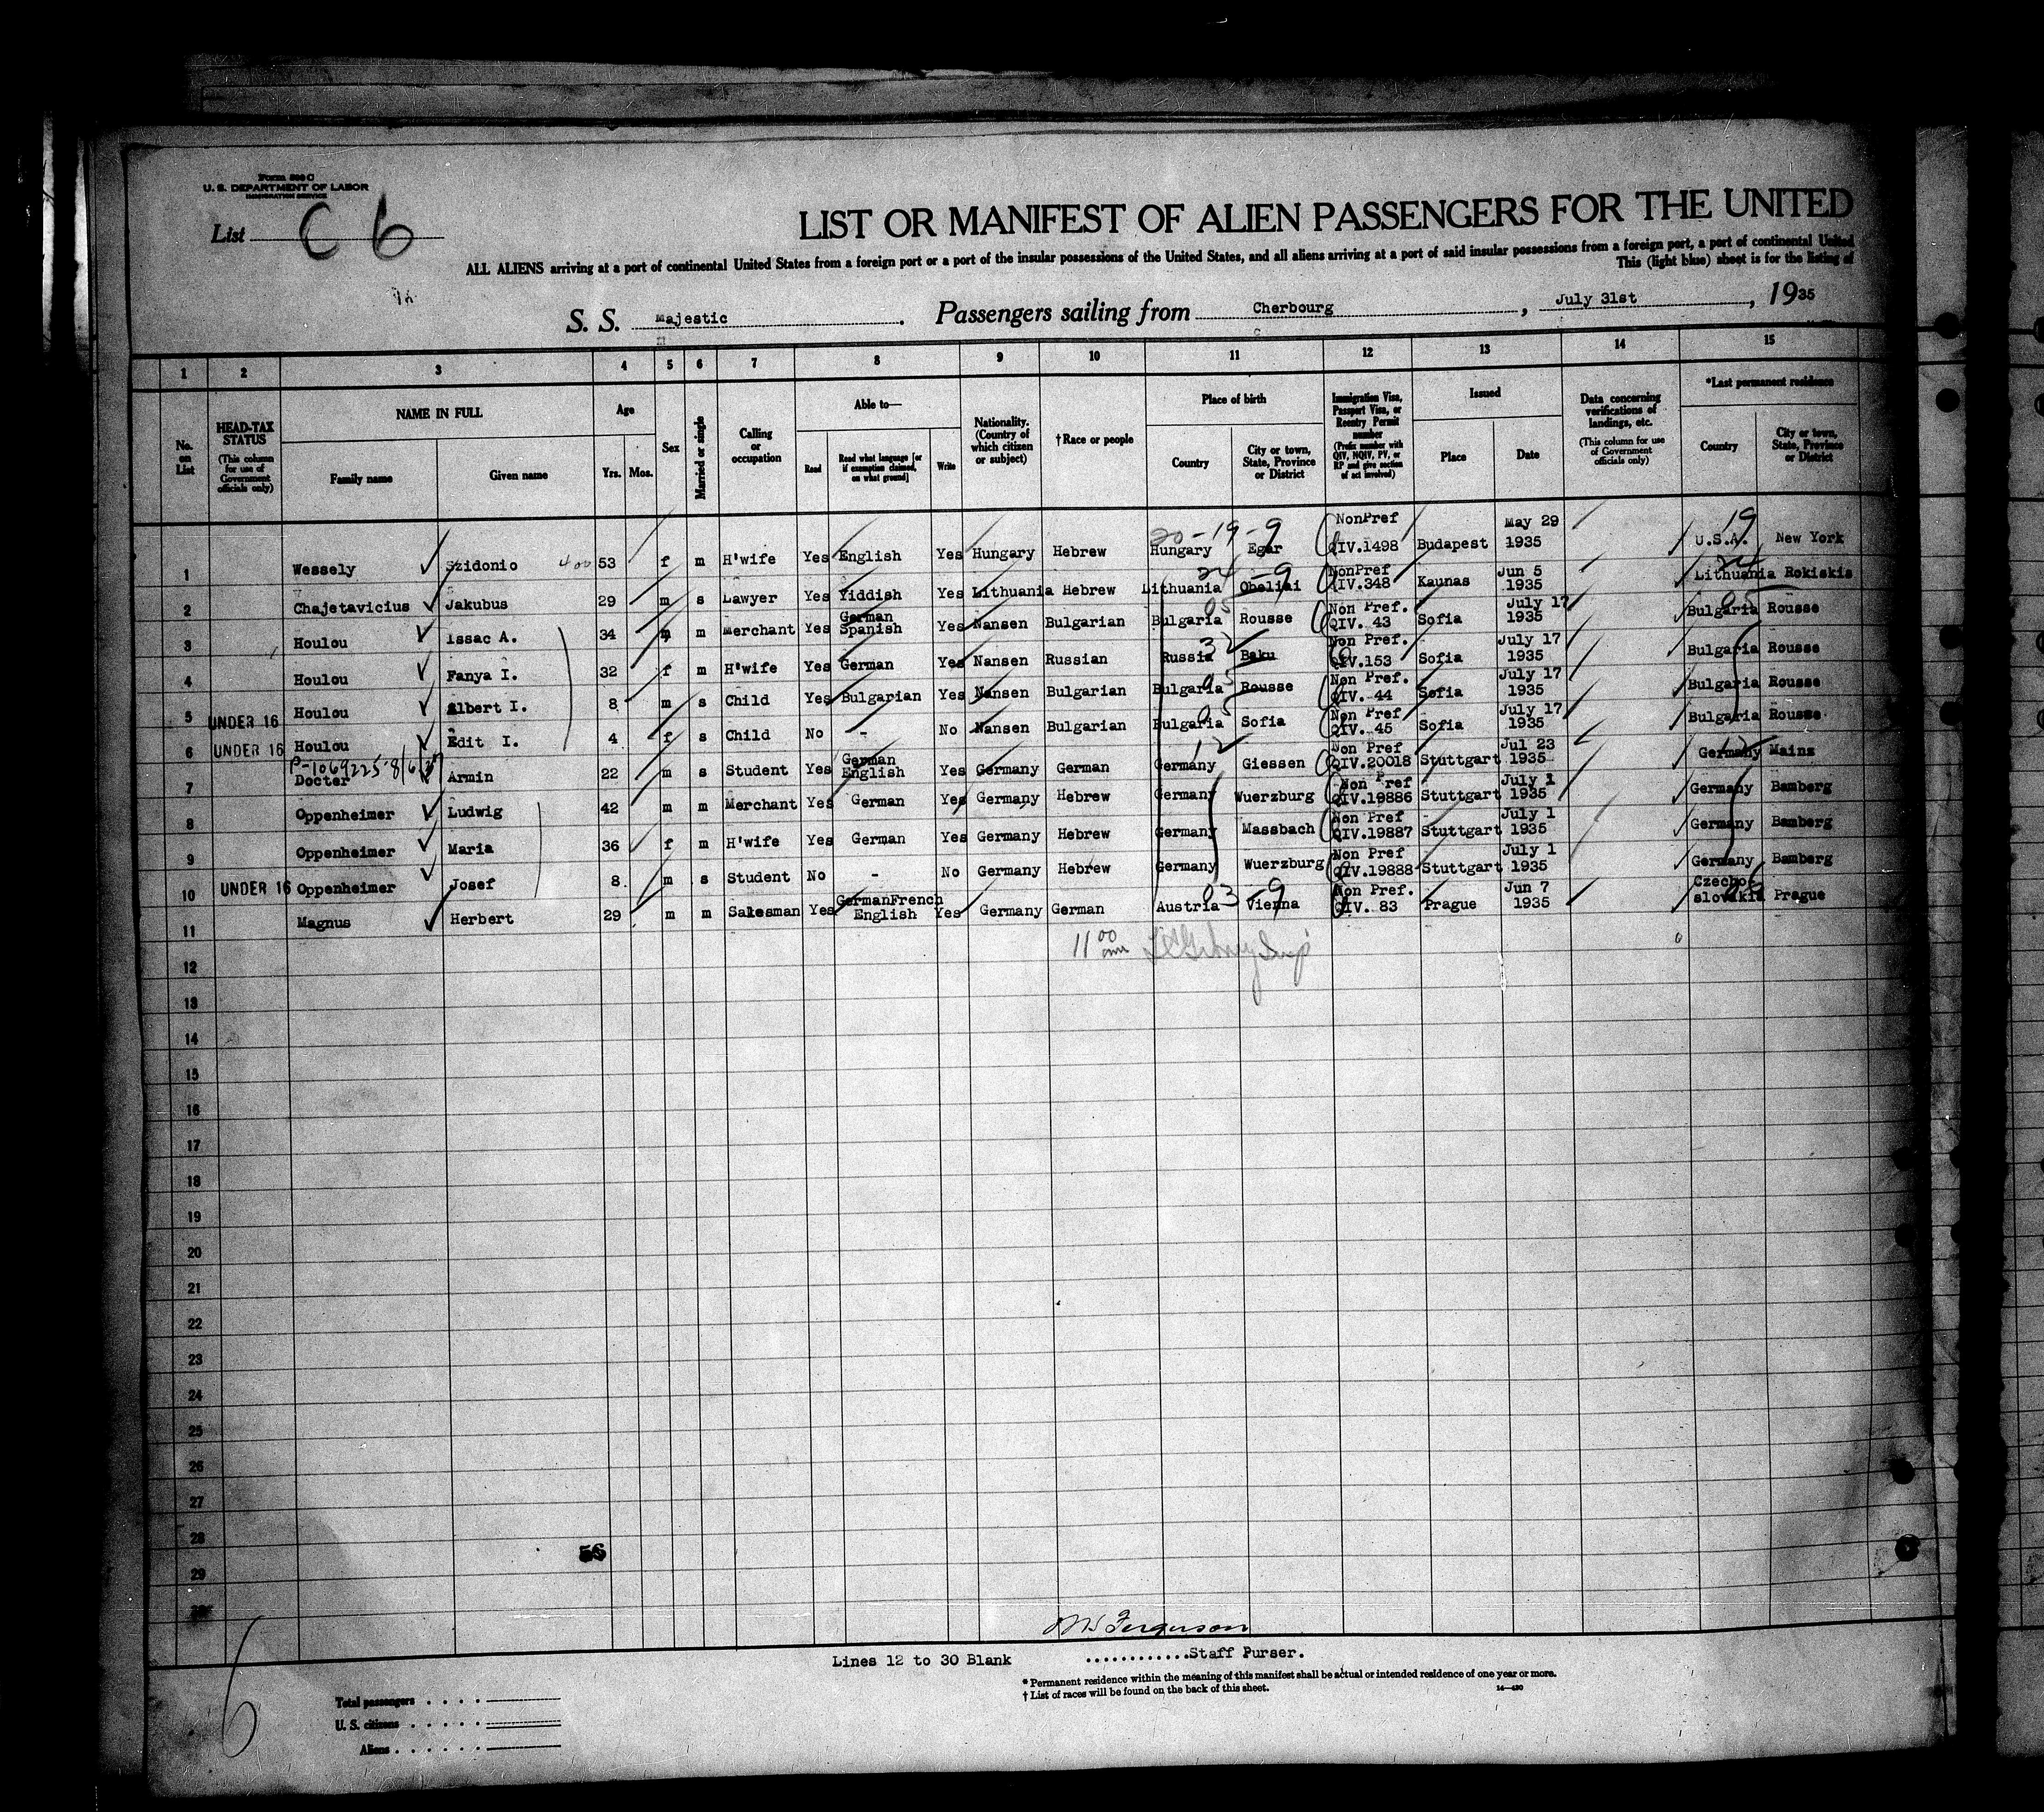 Form 500 C
U. S. DEPARTMENT OF LABOR
IMMIGRATION SERVICE
List C 6
LIST OR MANIFEST OF ALIEN PASSENGERS FOR THE UNITED
ALL ALIENS arriving at a port of continental United States from a foreign port or a port of the insular possessions of the United States, and all aliens arriving at a port of said insular possessions from a foreign port, a port of continental United
This (light blue) sheet is for the listing of
S. S. Majestic. Passengers sailing from Cherbourg, July 31st, 1935
1 2 3 4 5 6 7 8 9 10 11 12 13 14 15
No. on List
HEAD-TAX STATUS (This column for use of Government officials only)
NAME IN FULL
Family name
Given name
Age
Yrs. Mos.
Sex
Married or single
Calling or occupation
Able to—
Read
Read what language [or if exemption claimed, on what ground]
Write
Nationality. (Country of which citizen or subject)
† Race or people
Place of birth
Country
City or town, State, Province or District
Immigration Visa, Passport Visa, or Reentry Permit number (Prefix number with QIV, NQIV, PV, or RP and give section of act involved)
Issued
Place
Date
Data concerning verifications of landings, etc. (This column for use of Government officials only)
*Last permanent residence
Country
City or town, State, Province or District
20-19-9 19
1 Wessely Szidonio 400 53 f m H'wife Yes English Yes Hungary Hebrew Hungary Egar NonPref QIV.1498 Budapest May 29 1935 U.S.A. New York
24 -9 24
2 Chajetavicius Jakubus 29 m s Lawyer Yes Yiddish Yes Lithuania Hebrew Lithuania Obeliai NonPref QIV.348 Kaunas Jun 5 1935 Lithuania Rokiskis
05 05
3 Houlou Issac A. 34 m m Merchant Yes German Spanish Yes Nansen Bulgarian Bulgaria Rousse Non Pref. QIV. 43 Sofia July 17 1935 Bulgaria Rousse
32
4 Houlou Fanya I. 32 f m H'wife Yes German Yes Nansen Russian Russia Baku Non Pref. QIV.153 Sofia July 17 1935 Bulgaria Rousse
05
5 UNDER 16 Houlou Albert I. 8 m s Child Yes Bulgarian Yes Nansen Bulgarian Bulgaria Rousse Non Pref. QIV. 44 Sofia July 17 1935 Bulgaria Rousse
05
6 UNDER 16 Houlou Edit I. 4 f s Child No - No Nansen Bulgarian Bulgaria Sofia Non Pref QIV. 45 Sofia July 17 1935 Bulgaria Rousse
P-1069225-8/6/37 12 12
7 Docter Armin 22 m s Student Yes German English Yes Germany German Germany Giessen Non Pref QIV.20018 Stuttgart Jul 23 1935 Germany Mainz
8 Oppenheimer Ludwig 42 m m Merchant Yes German Yes Germany Hebrew Germany Wuerzburg Non Pref QIV.19886 Stuttgart July 1 1935 Germany Bamberg
9 Oppenheimer Maria 36 f m H'wife Yes German Yes Germany Hebrew Germany Massbach Non Pref QIV.19887 Stuttgart July 1 1935 Germany Bamberg
10 UNDER 16 Oppenheimer Josef 8 m s Student No - No Germany Hebrew Germany Wuerzburg Non Pref QIV.19888 Stuttgart July 1 1935 Germany Bamberg
03 -9
11 Magnus Herbert 29 m m Salesman Yes German French English Yes Germany German Austria Vienna Non Pref. QIV. 83 Prague Jun 7 1935 Czecho-slovakia Prague
12 11 00 am
13
14
15
16
17
18
19
20
21
22
23
24
25
26
27
28
56
29
30
Ferguson
Lines 12 to 30 Blank ............Staff Purser.
* Permanent residence within the meaning of this manifest shall be actual or intended residence of one year or more.
† List of races will be found on the back of this sheet.
6
Total passengers
U. S. citizens
Aliens